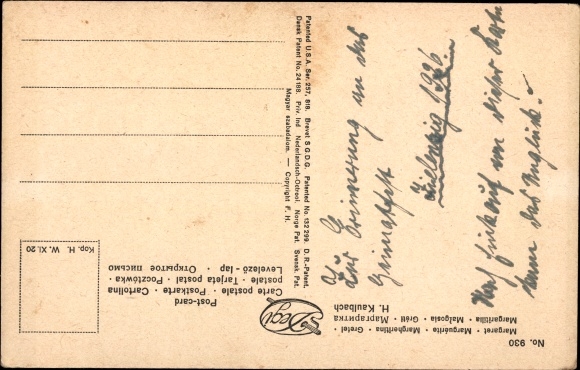 No. 930
Margaret · Marguérite · Margheritina · Gretel ·
Margaritilla · Malgosia · Grétl · Маргаритка
H. Kaulbach
Degi
Post-card
Carte postale · Postkarte · Cartolina
postale · Tarjeta postal · Pocztówka ·
Levelező-lap · Открытое письмо
Kop. H. W. XI. 20
Patented U.S.A. Ser. 257, 818. Brevet S G D G. Patented No. 132 299. D. R.-Patent.
Dansk Patent No. 24 188. Priv. Ind Nederlandsch-Octrooi. Norge Pat. Svensk Pat.
Magyar szabadalom. — Copyright F. H.
Zur Erinnerung an das
Heimatfest
Zielenzig 1926.
Nach Einkauf von dieser Karte
kam das Unglück.-